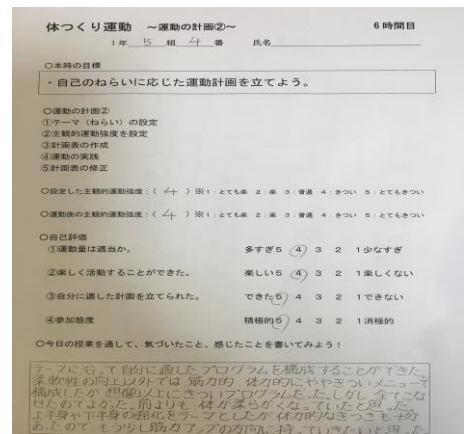 体つくり運動 ～運動の計画②～ 6時間目
1年 5 組 4 番 氏名
○本時の目標
・自己のねらいに応じた運動計画を立てよう。
○運動の計画②
①テーマ（ねらい）の設定
②主観的運動強度を設定
③計画表の作成
④運動の実践
⑤計画表の修正
○設定した主観的運動強度：（ 4 ）※1：とても楽 2：楽 3：普通 4：きつい 5：とてもきつい
○運動後の主観的運動強度：（ 4 ）※1：とても楽 2：楽 3：普通 4：きつい 5：とてもきつい
○自己評価
①運動量は適当か。 多すぎ5 4 3 2 1少なすぎ
②楽しく活動することができた。 楽しい5 4 3 2 1楽しくない
③自分に適した計画を立てられた。 できた5 4 3 2 1できない
④参加態度 積極的5 4 3 2 1消極的
○今日の授業を通して、気づいたこと、感じたことを書いてみよう！
テーマに沿って自分に適したプログラムを構成することができた。
柔軟性の向上以外では、筋力的、体力的にややきついメニューで
構成したが想像以上にきついプログラムだった。しかし、全てこな
せたのでよかった。前よりも、体が柔らかくなっていたと思った。
上半身や下半身の強化をテーマとしたが、体力的なきつさも十分
あったので、もう少し筋力アップの方向に持っていきたいと思った